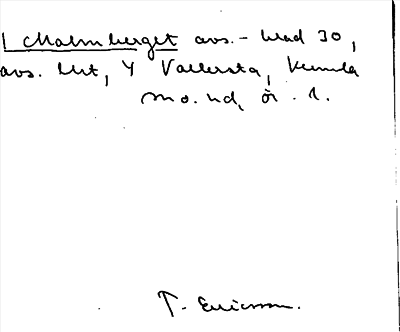 1 Malmberget avs. - blad 30,
avs. litt, Y Vallersta, Kumla
sn o. hd, ör. l.
T. Ericsson.